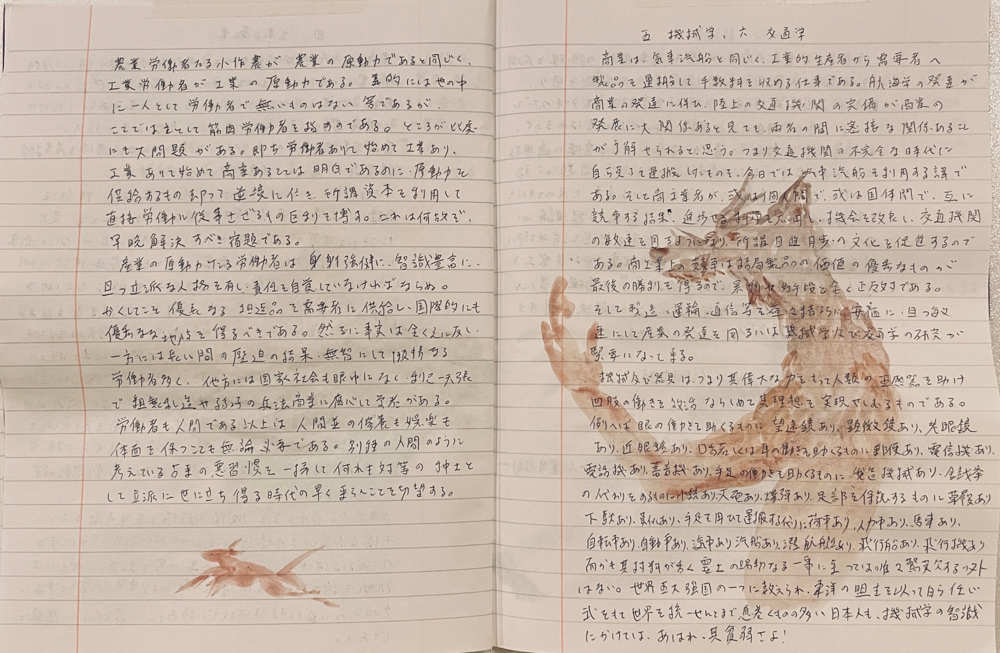 農業労働者たる小作農が 農業の原動力であると同じく、
工業労働者が工業の原動力である。 には世の中
に一人として労働者で無いものはない筈であるが、
ここでは主として筋肉労働者を指すのである。ところが此処
にも大問題がある。即ち労働者ありて始めて工業あり、
工業ありて始めて商業あることは明白であるのに、原動力を
供給するもの却って逆境に在り、所謂資本を利用して
直接労働に従事せざるもの巨利を博す。これは何故ぞ、
早晩解決すべき宿題である。
産業の原動力たる労働者は、身躰強健に、智識豊富に、
且つ立派な人格を有し、責任を自覚していなければならぬ。
かくしてこそ優良なる 品を需要者に供給し、国際的にも
優良なる地位を得るべきである。然るに事実は全く之に反し、
一方には長い間の圧迫の結果、無智にして なる
労働者多く、他方には国家も社会も眼中になく、利己一点張
で粗製乱造や の兵法商業に腐心して 者がある。
労働者も人間である以上は、人間並の修養も娯楽も
体面を保つことも無論必要である。別種の人間のように
考えている古来の悪習慣を一掃して何れも対等の紳士と
して立派に世に立ち得る時代の早く来らんことを切望する。
五 機械学、六 交通学
商業は、気車汽船と同じく、工業的生産者から需要者へ
製品を運搬して手数料を収める仕事である。航海学の発達が
商業の発達に伴ひ、陸上の交通機関の完備が商業の
発展に大関係あると見ても、両者の間に密接な関係あること
が了解せられると思う。つまり交通機関の不完全な時代に
自ら 運搬 ものを、今日では 汽船を利用する訳で
ある。そして商業者が、或は個人間で、或は国体間で、互に
競争する結果、進歩せる科学を応用し、機会を改良し、交通機関
の敏速を図るようになり、所謂日進月歩の文化を促進するので
ある。商工業上の競争は結局製品の価値の優良なものが
最後の勝利を得るので、 手段と全く正反対である。
そして製造、運輸、通信等を 安価に、且つ敏
速にして産業の発達を図るには機械学及び交通学の研究が
緊要になって来る。
機械及び器具は、つまり其偉大な力をもって人類の五感器を助け
四肢の働きを ならしめて其理想を実現せしむるものである。
例へば眼の働きを助くるものに望遠鏡あり、顕微鏡あり、老眼鏡
あり、近眼鏡あり、口若しくは耳の働きを助くるものに郵便あり、電信機あり、
電話機あり、蓄音機あり、手足の働きを助くるものに製造機械あり、
の代わりをするものに小銃あり、大砲あり、爆弾あり、足部を保護するものに草履あり
下駄あり、靴あり、手足を用ひて運搬する代りに荷車あり、人力車あり、馬車あり、
自転車あり、自動車あり、汽車あり、汽船あり、潜航艇あり、飛行船あり、飛行機あり
はない。世界五大強国の一つに数えられ、東洋の盟主を以って自ら任じ
武を以て世界を統一せんとまで思考くもの多い日本人も、機械学の智識
にかけては、あはれ、其貧弱さよ!